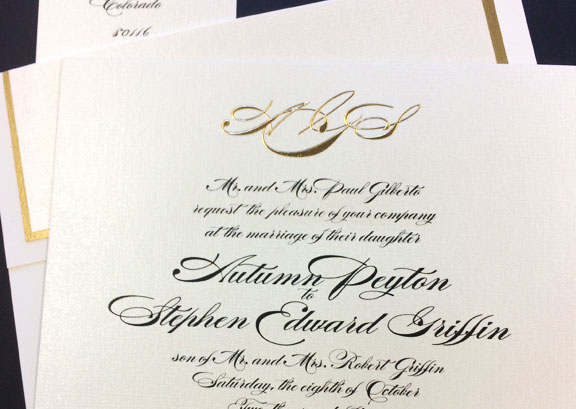 Colorado
80116
AGS
Mr. and Mrs. Paul Gilberto
request the pleasure of your company
at the marriage of their daughter
Autumn Peyton
to
Stephen Edward Griffin
son of Mr. and Mrs. Robert Griffin
Saturday, the eighth of October
Two thousand